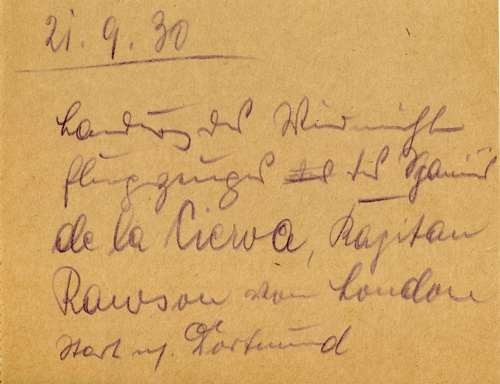 21. 9. 30
Landung des Windmühl
flugzeuges des Spaniers
de la Cierva, Kapitän
Rawson von London
Start n. Dortmund